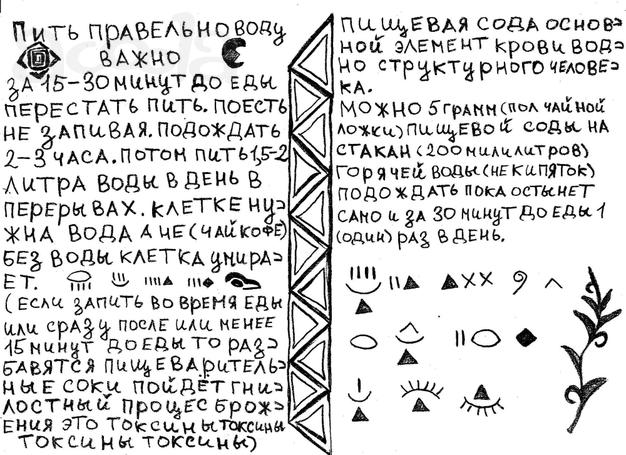 Пить правельно воду
важно
за 15-30 минут до еды
перестать пить. поесть
не запивая. подождать
2-3 часа. потом пить 1,5-2
литра воды в день в
перерывах. клетке ну-
жна вода а не (чай кофе)
без воды клетка умира-
ет.
(если запить во время еды
или сразу после или менее
15 минут до еды то раз-
бавятся пищеваритель-
ные соки пойдёт гни-
лостный процес брож-
ения это токсины токсины
токсины токсины)
пищевая сода основ-
ной элемент крови вод-
но структурного челове-
ка.
можно 5 грамм (пол чайной
ложки) пищевой соды на
стакан (200 милилитров)
горячей воды (не кипяток)
подождать пока остынет
само и за 30 минут до еды 1
(один) раз в день.